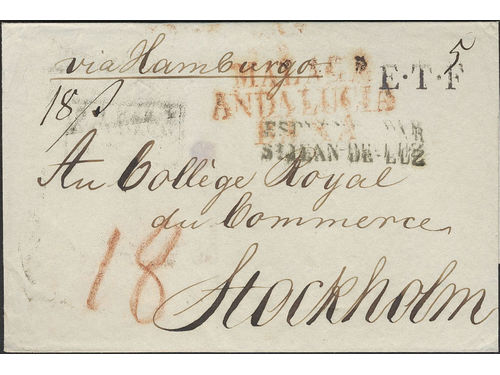 via Hamburgo
5
MALAGA
E·T·F
18/
ANDALUCIA
ESPAGNE PAR
ST JEAN-DE-LUZ
Au Collège Royal
du Commerce
18
Stockholm